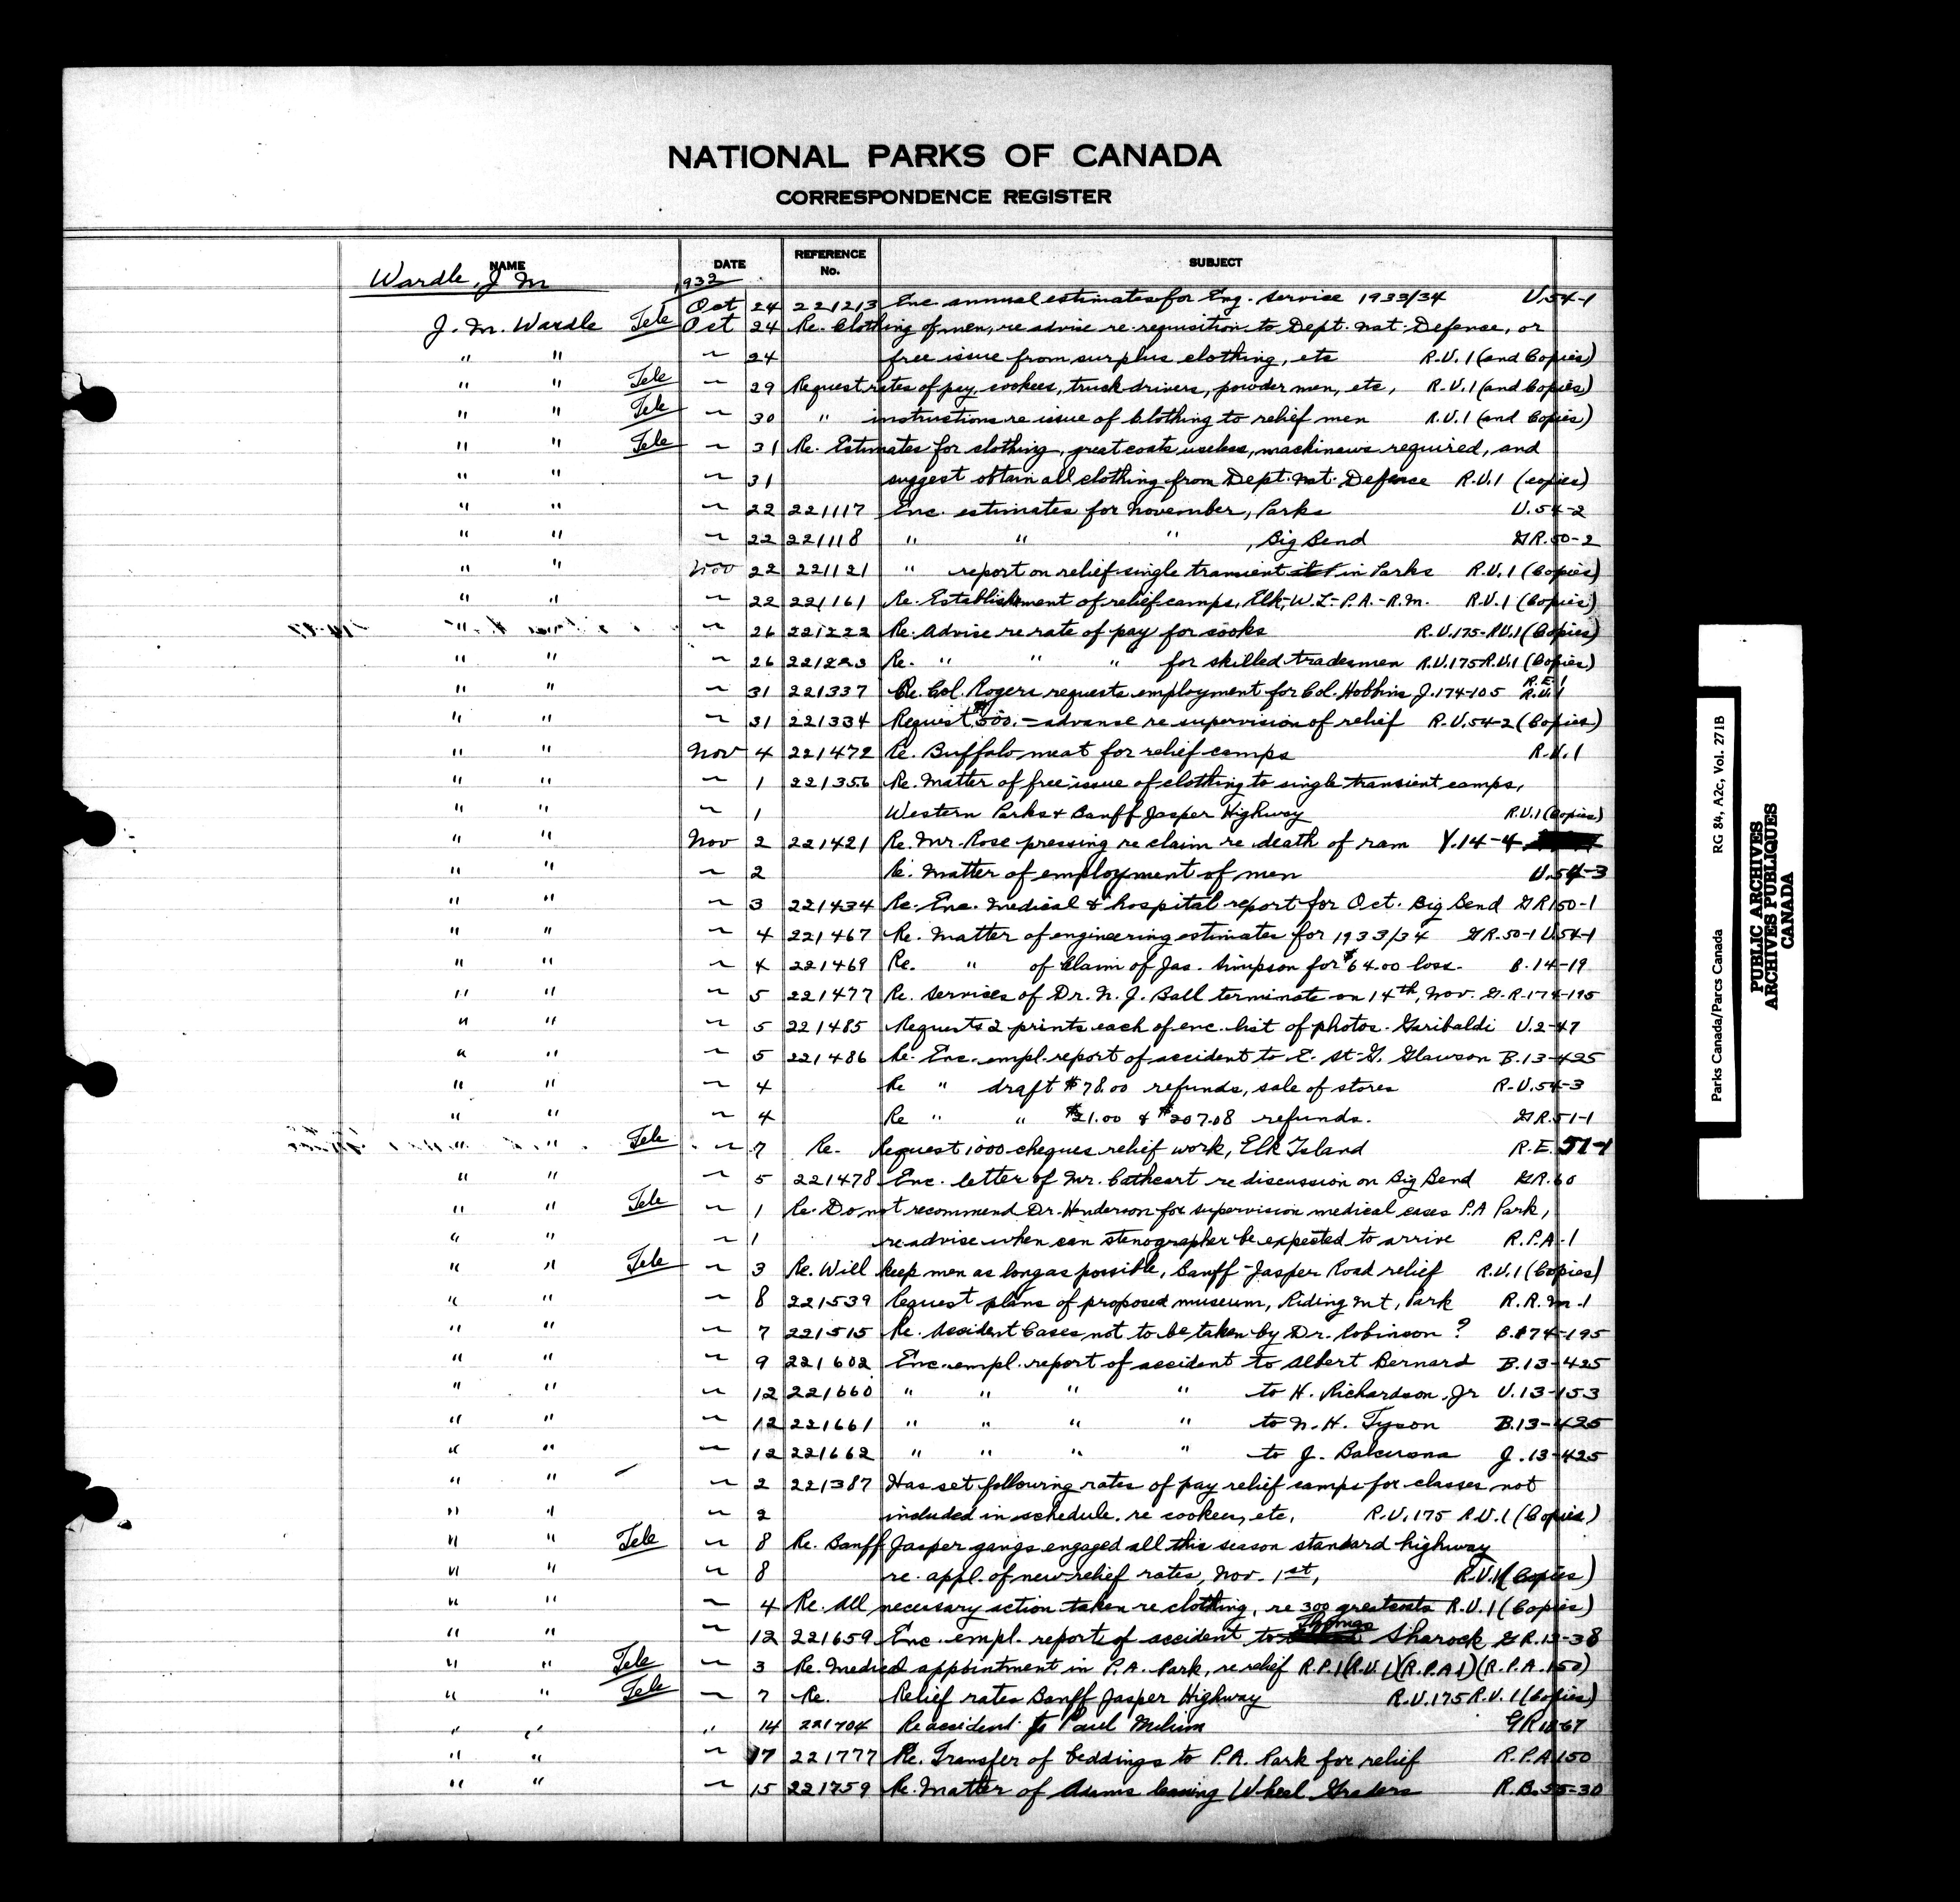 NATIONAL PARKS OF CANADA
CORRESPONDENCE REGISTER
NAME DATE REFERENCE No. SUBJECT
Wardle, J M 1932
Oct 24 221213 Enc. annual estimates for Eng. Service 1933/34 U.54-1
J. M. Wardle Tele Oct 24 Re. Clothing of men, re advise re requisition to Dept. Nat. Defence, or
" " ~ 24 free issue from surplus clothing, etc R.U.1 (and Copies)
" " Tele ~ 29 Request rates of pay, cookees, truck drivers, powder men, etc, R.U.1 (and Copies)
" " Tele ~ 30 " instructions re issue of Clothing to relief men R.U.1 (and Copies)
" " Tele ~ 31 Re. Estimates for clothing, great coats useless, mackinaws required, and
" " ~ 31 suggest obtain all clothing from Dept. Nat. Defence R.U.1 (copies)
" " ~ 22 221117 Enc. estimates for November, Parks U.54-2
" " ~ 22 221118 " " " , Big Bend GR.50-2
" " Nov 22 221121 " report on relief single transient in Parks R.U.1 (Copies)
" " ~ 22 221161 Re. Establishment of relief camps, Elk,-W.L.-P.A.-R.M. R.U.1 (Copies)
" ~ 26 221222 Re. Advise re rate of pay for cooks R.U.175-RU.1 (Copies)
" " ~ 26 221223 Re. " " " for skilled tradesmen R.U.175 R.U.1 (Copies)
" " ~ 31 221337 Re. Col. Rogers requests employment for Col. Hobbins J.174-105 R.E.1 R.U.1
" " ~ 31 221334 Request $500.= advance re supervision of relief R.U.54-2 (Copies)
" " Nov 4 221472 Re. Buffalo meat for relief camps R.U.1
" " ~ 1 221356 Re. Matter of free issue of clothing to single transient camps,
" " ~ 1 Western Parks & Banff Jasper Highway R.U.1 (Copies)
" " Nov 2 221421 Re. Mr. Rose pressing re claim re death of ram Y.14-4
" " ~ 2 Re. Matter of employment of men U.54-3
" " ~ 3 221434 Re. Enc. Medical & hospital report for Oct. Big Bend GR150-1
" " ~ 4 221467 Re. Matter of engineering estimates for 1933/34 GR.50-1 U.54-1
" " ~ 4 221469 Re. " of Claim of Jas. Simpson for $64.00 loss. B.14-19
" " ~ 5 221477 Re. Services of Dr. N. J. Ball terminate on 14th, Nov. G.R.174-195
" " ~ 5 221485 Requests 2 prints each of enc. list of photos. Garibaldi U.2-47
" " ~ 5 221486 Re. Enc. empl. report of accident to E. St. G. Glawson B.13-425
" " ~ 4 Re " draft $78.00 refunds, sale of stores R.U.54-3
" " ~ 4 Re " " $21.00 & $207.08 refunds. GR.51-1
" " Tele ~ 7 Re. Request 1000 cheques relief work, Elk Island R.E. 51-1
" " ~ 5 221478 Enc. letter of Mr. Cathcart re discussion on Big Bend GR.60
" " Tele ~ 1 Re. Do not recommend Dr. Henderson for supervision medical cases P.A Park,
" " ~ 1 re advise when can stenographer be expected to arrive R.P.A-1
" " Tele ~ 3 Re. Will keep men as long as possible, Banff-Jasper Road relief R.U.1 (Copies)
" " ~ 8 221539 Request plans of proposed museum, Riding Mt, Park R.R.M-1
" " ~ 7 221515 Re. Accident Cases not to be taken by Dr. Robinson ? B.174-195
" " ~ 9 221602 Enc. empl. report of accident to Albert Bernard B.13-425
" " ~ 12 221660 " " " " to H. Richardson, Jr U.13-153
" " ~ 12 221661 " " " " to N. H. Tyson B.13-425
" " ~ 12 221662 " " " " to J. J.13-425
" " ~ 2 221387 Has set following rates of pay relief camps for classes not
" " ~ 2 included in schedule. re cookees, etc. R.U.175 R.U.1 (Copies)
" " Tele ~ 8 Re. Banff Jasper gangs engaged all this season standard highway
" " ~ 8 re. appl. of new relief rates, Nov. 1st, R.U.1 (Copies)
" " ~ 4 Re. All necessary action taken re clothing, re 300 greatcoats R.U.1 (Copies)
" " ~ 12 221659 Enc. empl. report of accident to Thomas Sharock GR.13-38
" " Tele ~ 3 Re. Medical appointment in P.A. Park, re relief R.P.1 (R.U.1) (R.P.A 1) (R.P.A.150)
" " Tele ~ 7 Re. Relief rates Banff Jasper Highway R.U.175 R.U.1 (Copies)
" " " 14 221704 Re accident to Paul
" " ~ 17 221777 Re. Transfer of beddings to P.A. Park for relief R.P.A 150
" " ~ 15 221759 Re. Matter of Adams leaning Wheel Graders R.B.55-30
Parks Canada/Parcs Canada RG 84, A2c, Vol. 271B
PUBLIC ARCHIVES
ARCHIVES PUBLIQUES
CANADA